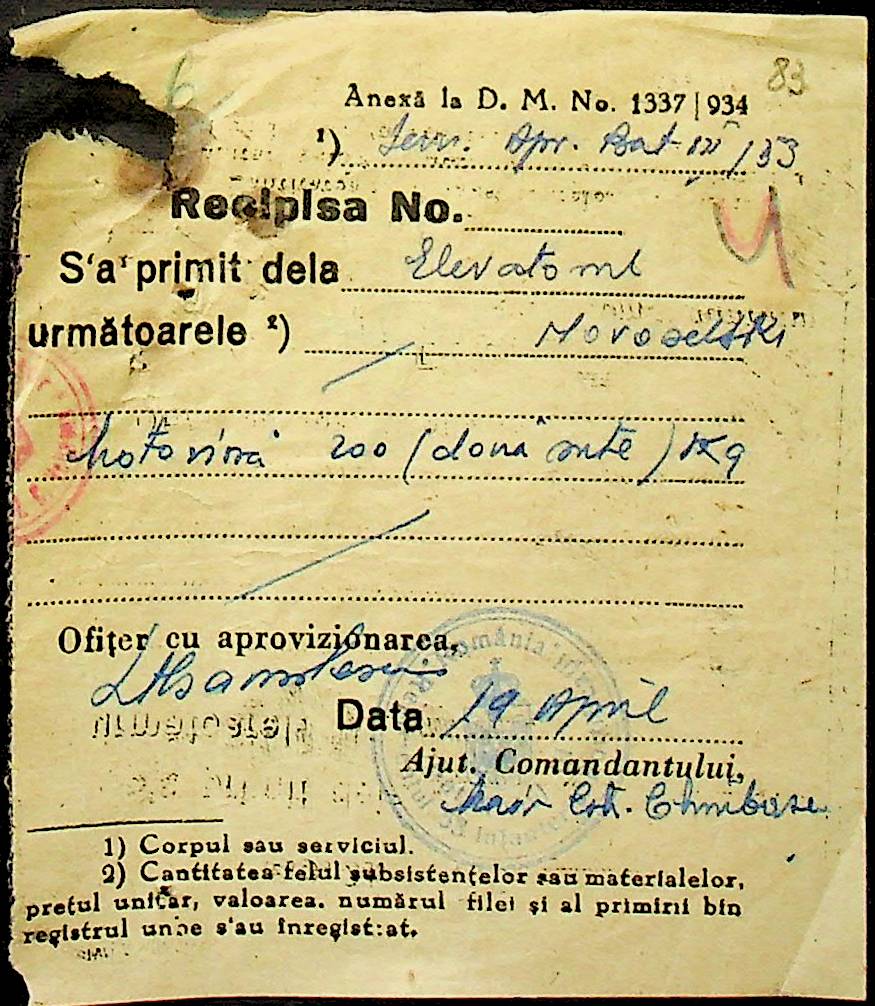 83
6
Anexă la D. M. No. 1337 | 934
1) Serv. Apr. Bat III / 53
Recipisa No.
4
S'a primit dela Elevatorul
următoarele 2) Novoselski
Motorină 200 (două sute) Kg
Ofițer cu aprovizionarea,
România
Data 19 April
Ajut. Comandantului,
Maior
1) Corpul sau serviciul.
2) Cantitatea felul subsistențelor sau materialelor,
prețul unitar, valoarea. numărul filei și al primirii bin
registrul unde s'au înregistrat.